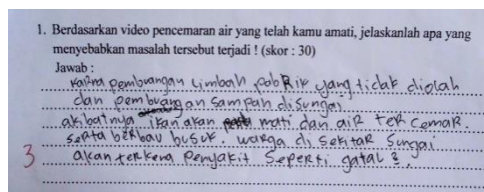 1. Berdasarkan video pencemaran air yang telah kamu amati, jelaskanlah apa yang
menyebabkan masalah tersebut terjadi ! (skor : 30)
Jawab :
Karna pembuangan limbah pabrik yang tidak diolah
dan pembuangan sampah disungai
akibatnya ikan akan mati dan air tercemar.
serta berbau busuk. warga di sekitar sungai
3 akan terkena penyakit seperti gatal2.